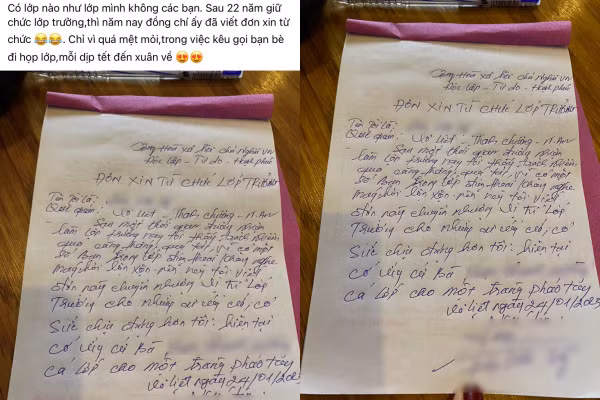 Có lớp nào như lớp mình không các bạn. Sau 22 năm giữ
chức lớp trưởng,thì năm nay đồng chí ấy đã viết đơn xin từ
chức 😂😂. Chỉ vì quá mệt mỏi,trong việc kêu gọi bạn bè
đi họp lớp,mỗi dịp tết đến xuân về 😍😍
Cộng Hoà xã hội chủ Nghĩa VN
Độc lập - Tự do - Hạnh phúc
ĐƠN XIN TỪ CHỨC LỚP TRƯỞNG
Tên Tôi Là:
Quê quán: Võ Liệt - Thanh chương - N. An
- Sau một thời gian đương nhiên
làm lớp trưởng nay tôi thấy trách nhiệm
quá căng thẳng, quá tải, vì có một
số bạn trong lớp điện thoại không nghe
máy, hỏi lộn xộn nên nay tôi viết
đơn này chuyển nhường vị trí Lớp
Trưởng cho những ứng viên có, có
Sức chịu đựng hơn tôi: hiện tại
có vậy cả Bà
cả lớp cho một tràng pháo tay
Võ liệt ngày 24/01/202
Cộng Hoà xã hội chủ Nghĩa VN
Độc lập - Tự do - Hạnh phúc
ĐƠN XIN TỪ CHỨC LỚP TRƯỞNG
Tên Tôi Là:
Quê quán: Võ Liệt - Thanh chương - N. An
- Sau một thời gian đương nhiên
làm lớp trưởng nay tôi thấy trách nhiệm
quá căng thẳng, quá tải, vì có một
số bạn trong lớp điện thoại không nghe
máy, hỏi lộn xộn nên nay tôi viết
đơn này chuyển nhường vị trí Lớp
Trưởng cho những ứng viên có, có
Sức chịu đựng hơn tôi: hiện tại
có vậy cả Bà
cả lớp cho một tràng pháo tay
Võ liệt ngày 24/01/2023